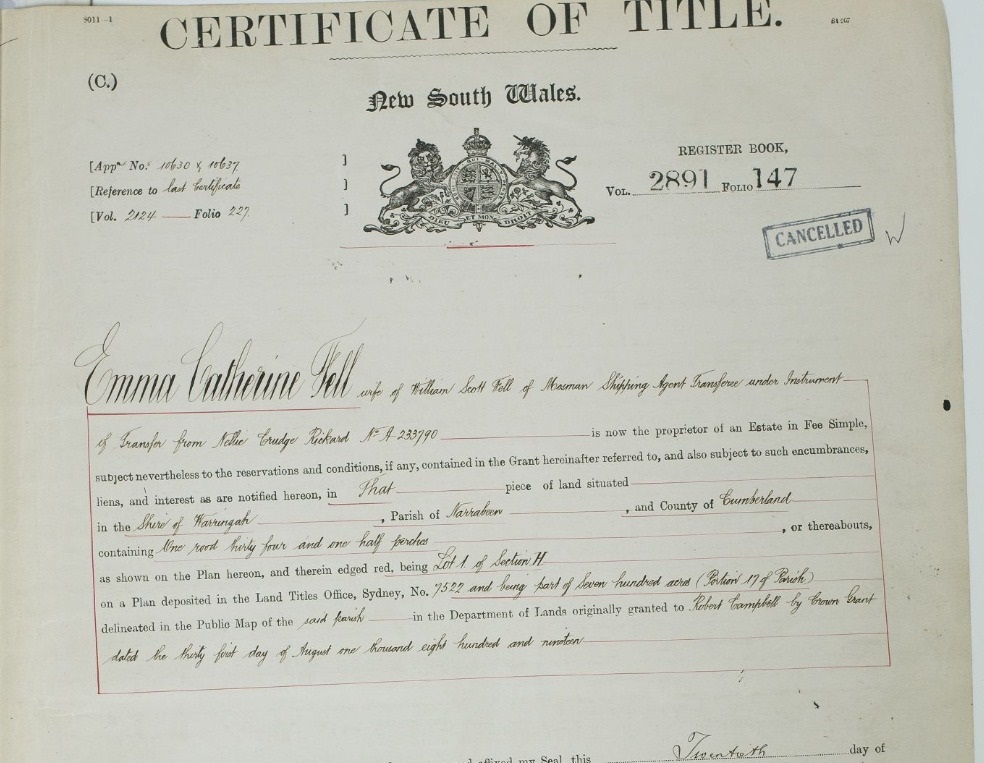 9011—1
CERTIFICATE OF TITLE.
(C.)
New South Wales.
[Appn No.s 10630 & 10637 ]
[Reference to last Certificate ]
[Vol. 2124 Folio 227 ]
REGISTER BOOK,
Vol. 2891 Folio 147
DIEU ET MON DROIT
CANCELLED
Emma Catherine Fell wife of William Scott Fell of Mosman Shipping Agent Transferee under Instrument
of Transfer from Nellie Crudge Rickard No A 233790 is now the proprietor of an Estate in Fee Simple,
subject nevertheless to the reservations and conditions, if any, contained in the Grant hereinafter referred to, and also subject to such encumbrances,
liens, and interest as are notified hereon, in That piece of land situated
in the Shire of Warringah, Parish of Narrabeen, and County of Cumberland
containing One rood thirty four and one half perches, or thereabouts,
as shown on the Plan hereon, and therein edged red, being Lot 1 of Section H
on a Plan deposited in the Land Titles Office, Sydney, No. 7522 and being part of Seven hundred acres (Portion 17 of Parish)
delineated in the Public Map of the said parish in the Department of Lands originally granted to Robert Campbell by Crown Grant
dated the thirty first day of August one thousand eight hundred and nineteen
my Seal, this Twentieth day of